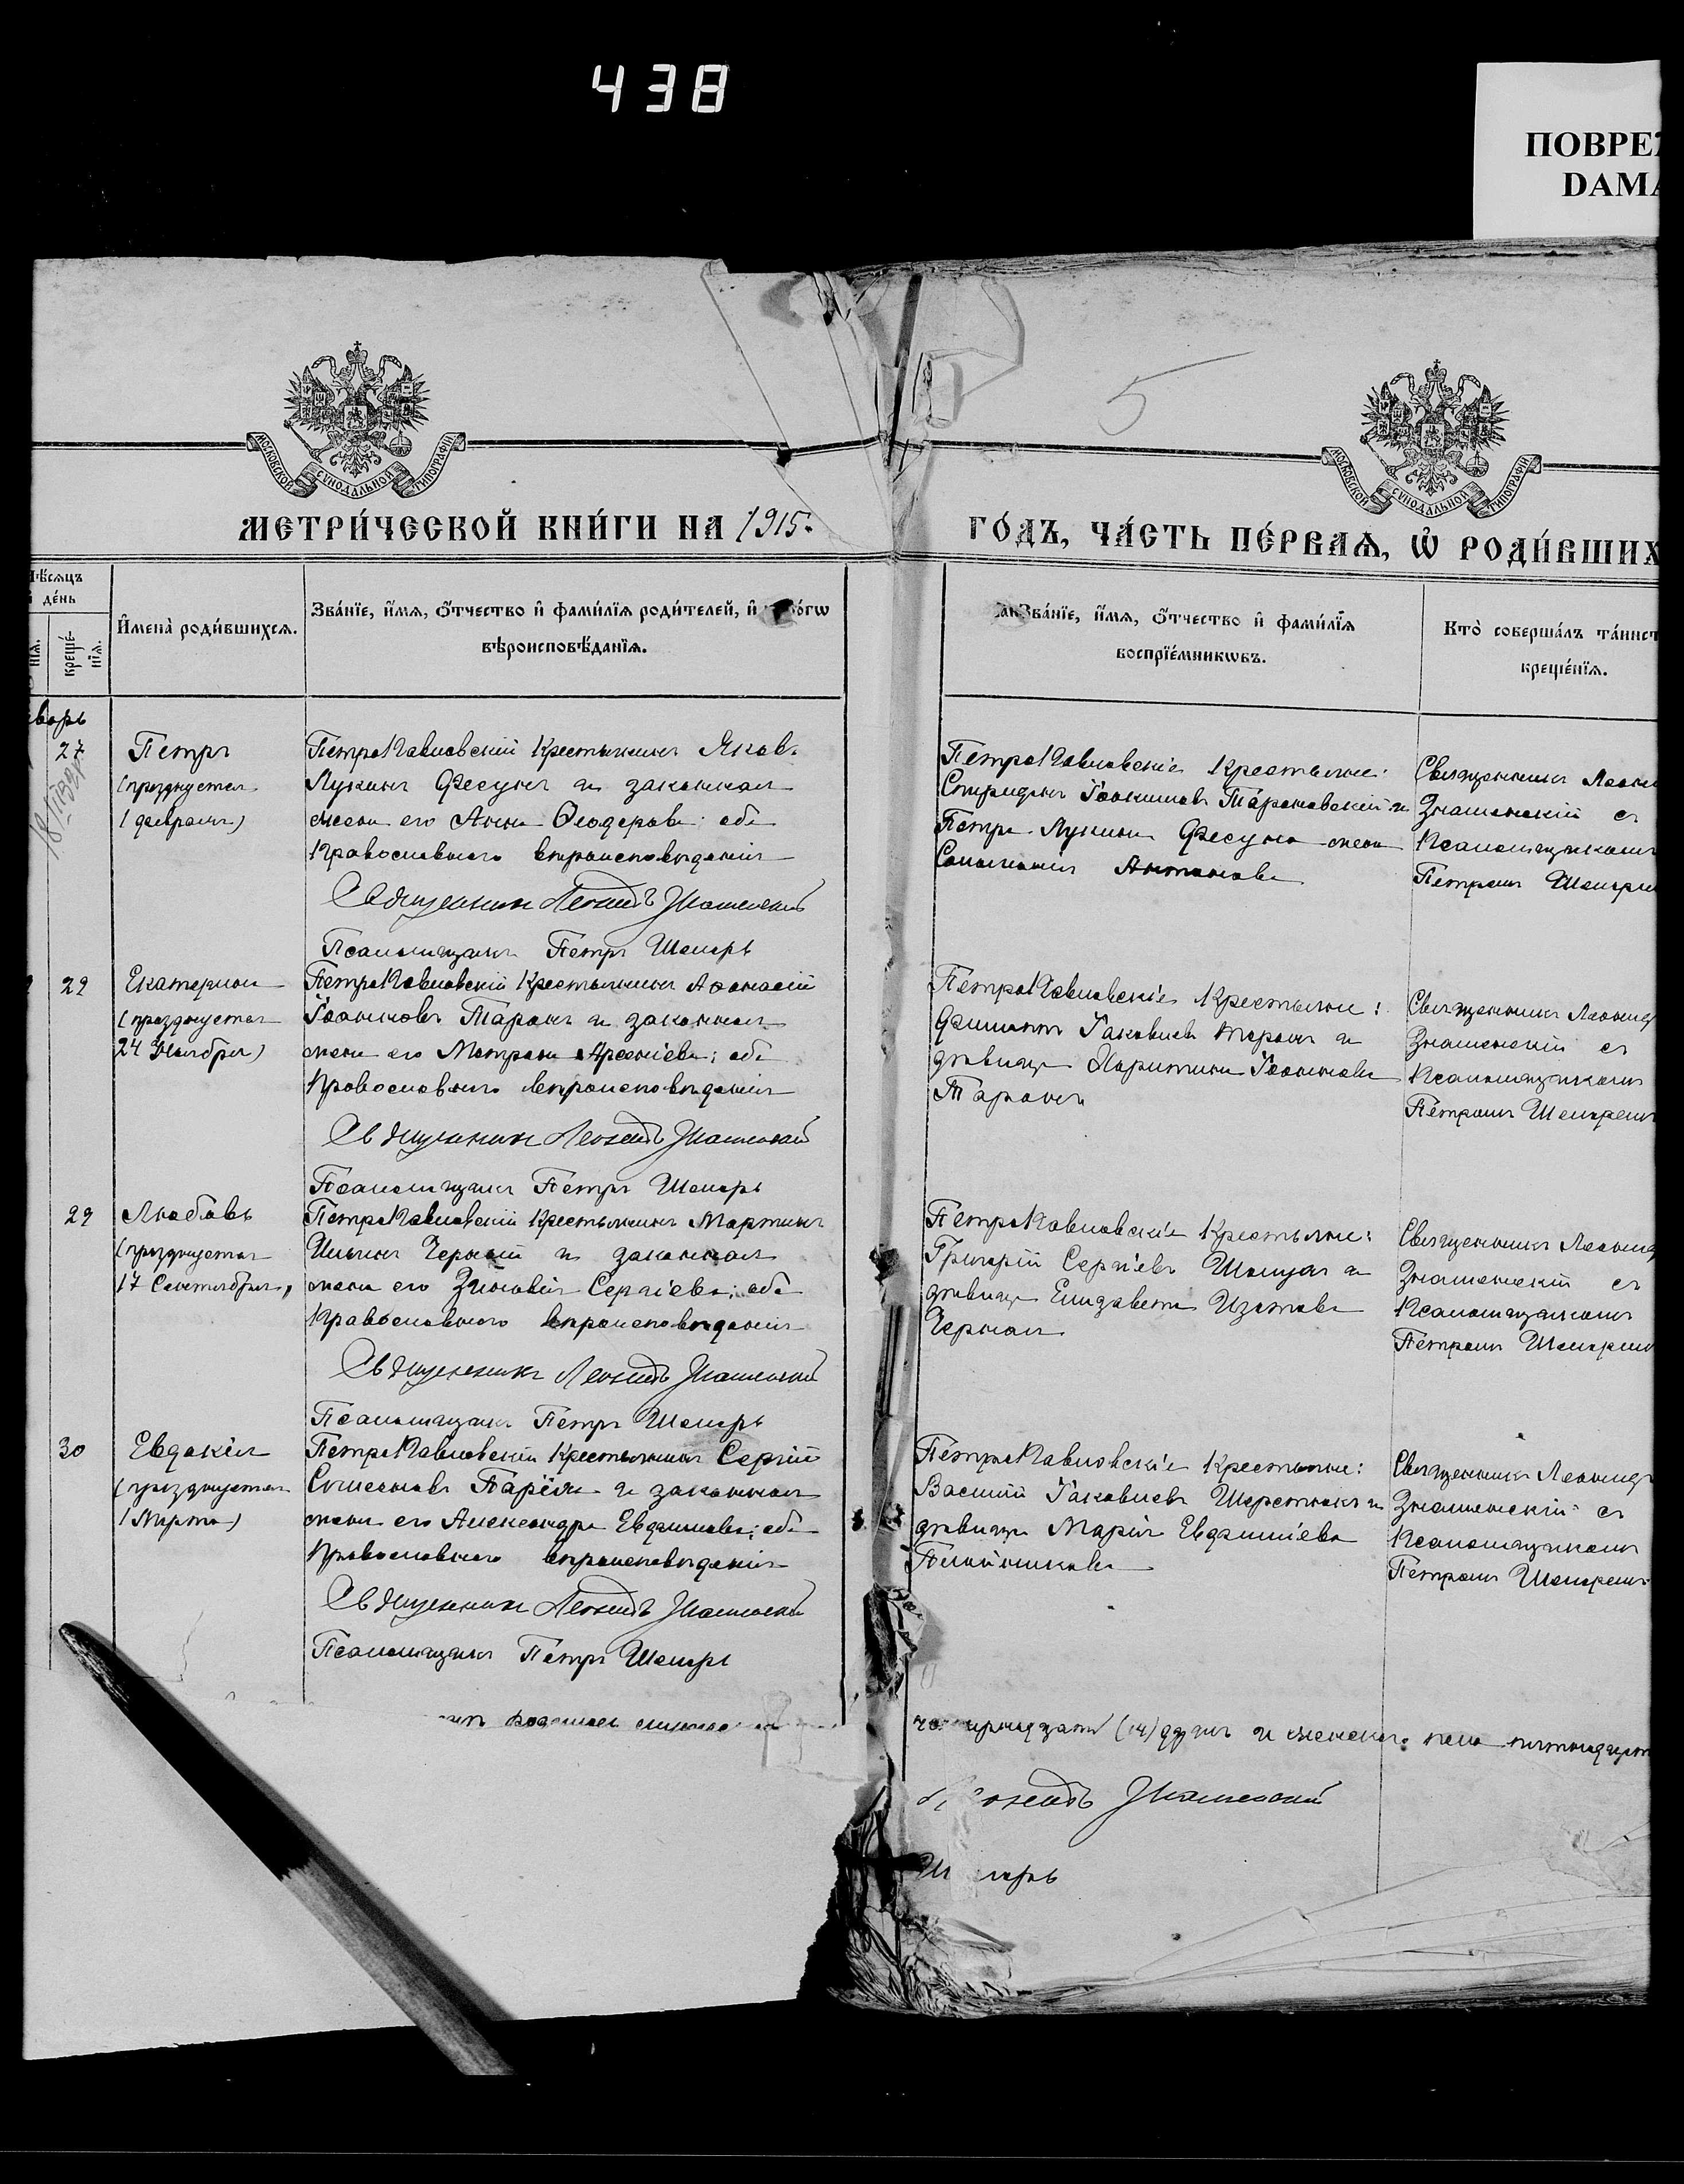 438
ПОВРЕ
DAMA
5
МОСКОВСКОЙ СѴНОДАЛЬНОЙ ТИПОГРАФІИ
МОСКОВСКОЙ СѴНОДАЛЬНОЙ ТИПОГРАФІИ
МЕТРИ́ЧЕСКОЙ КНИ́ГИ НА 1915.
ГО́ДЪ, ЧА́СТЬ ПЕ́РВАѦ, Ѡ҆ РОДИ́ВШИХ
Мѣ́сяцъ
де́нь
нїѧ.
креще́-
нїѧ.
И҆мена̀ роди́вшихсѧ.
Зва́нїе, и҆́мѧ, ѻ҆́тчество и҆ фами́лїѧ роди́телей, и҆
вѣроисповѣ́данїѧ.
Зва́нїе, и҆́мѧ, ѻ҆́тчество и҆ фами́лїѧ
воспрїе́мникѡвъ.
Кто̀ соверша́лъ та́инст
креще́нїѧ.
27
Петръ
(празднуется
1 февраля)
ПетроПавловскій Крестьянинъ Яков.
Лукинъ Фесунъ и законная
жена его Анна Ѳеодорова: оба
Православнаго вѣроисповѣданія
Священникъ Леонидъ Знаменскій
Псаломщикъ Петръ Шапарь
ПетроПавловскіе Крестьяне:
Спиридонъ Іоакимовъ Тарановскій и
Петра Лукина Фесуна жена
Соломонія Антонова
Священникъ Леони
Знаменскій съ
Псаломщикомъ
Петромъ Шапаре
29
Екатерина
(празднуется
24 Ноября)
ПетроПавловскій Крестьянинъ Аѳанасій
Іоанновъ Таранъ и законная
жена его Матрона Арсеніева; оба
Православнаго вѣроисповѣданія
Священникъ Леонидъ Знаменскій
Псаломщикъ Петръ Шапарь
ПетроПавловскіе Крестьяне:
Филиппъ Іаковлевъ Таранъ и
дѣвица Харитина Іоаннова
Таранъ
Священникъ Леонид
Знаменскій съ
Псаломщикомъ
Петромъ Шапаремъ
29
Любовь
(празднуется
17 Сентября)
ПетроПавловскій Крестьянинъ Мартинъ
Ильинъ Черный и законная
жена его Зиновія Сергіева; оба
Православнаго вѣроисповѣданія
Священникъ Леонидъ Знаменскій
Псаломщикъ Петръ Шапарь
ПетроПавловскіе Крестьяне:
Григорій Сергіевъ и
дѣвица Елизавета
Черная
Священникъ Леонид
Знаменскій съ
Псаломщикомъ
Петромъ Шапаремъ
30
Евдокія
(празднуется
1 Марта)
ПетроПавловскій Крестьянинъ Сергій
и законная
жена его Александра; оба
Православнаго вѣроисповѣданія
Священникъ Леонидъ Знаменскій
Псаломщикъ Петръ Шапарь
ПетроПавловскіе Крестьяне:
Василій Іаковлевъ Шерстюкъ и
дѣвица Марія
Священникъ Леонид
Знаменскій съ
Псаломщикомъ
Петромъ Шапаремъ
(14) душъ и женскаго пола пятнадцат
Леонидъ Знаменскій
Шапарь